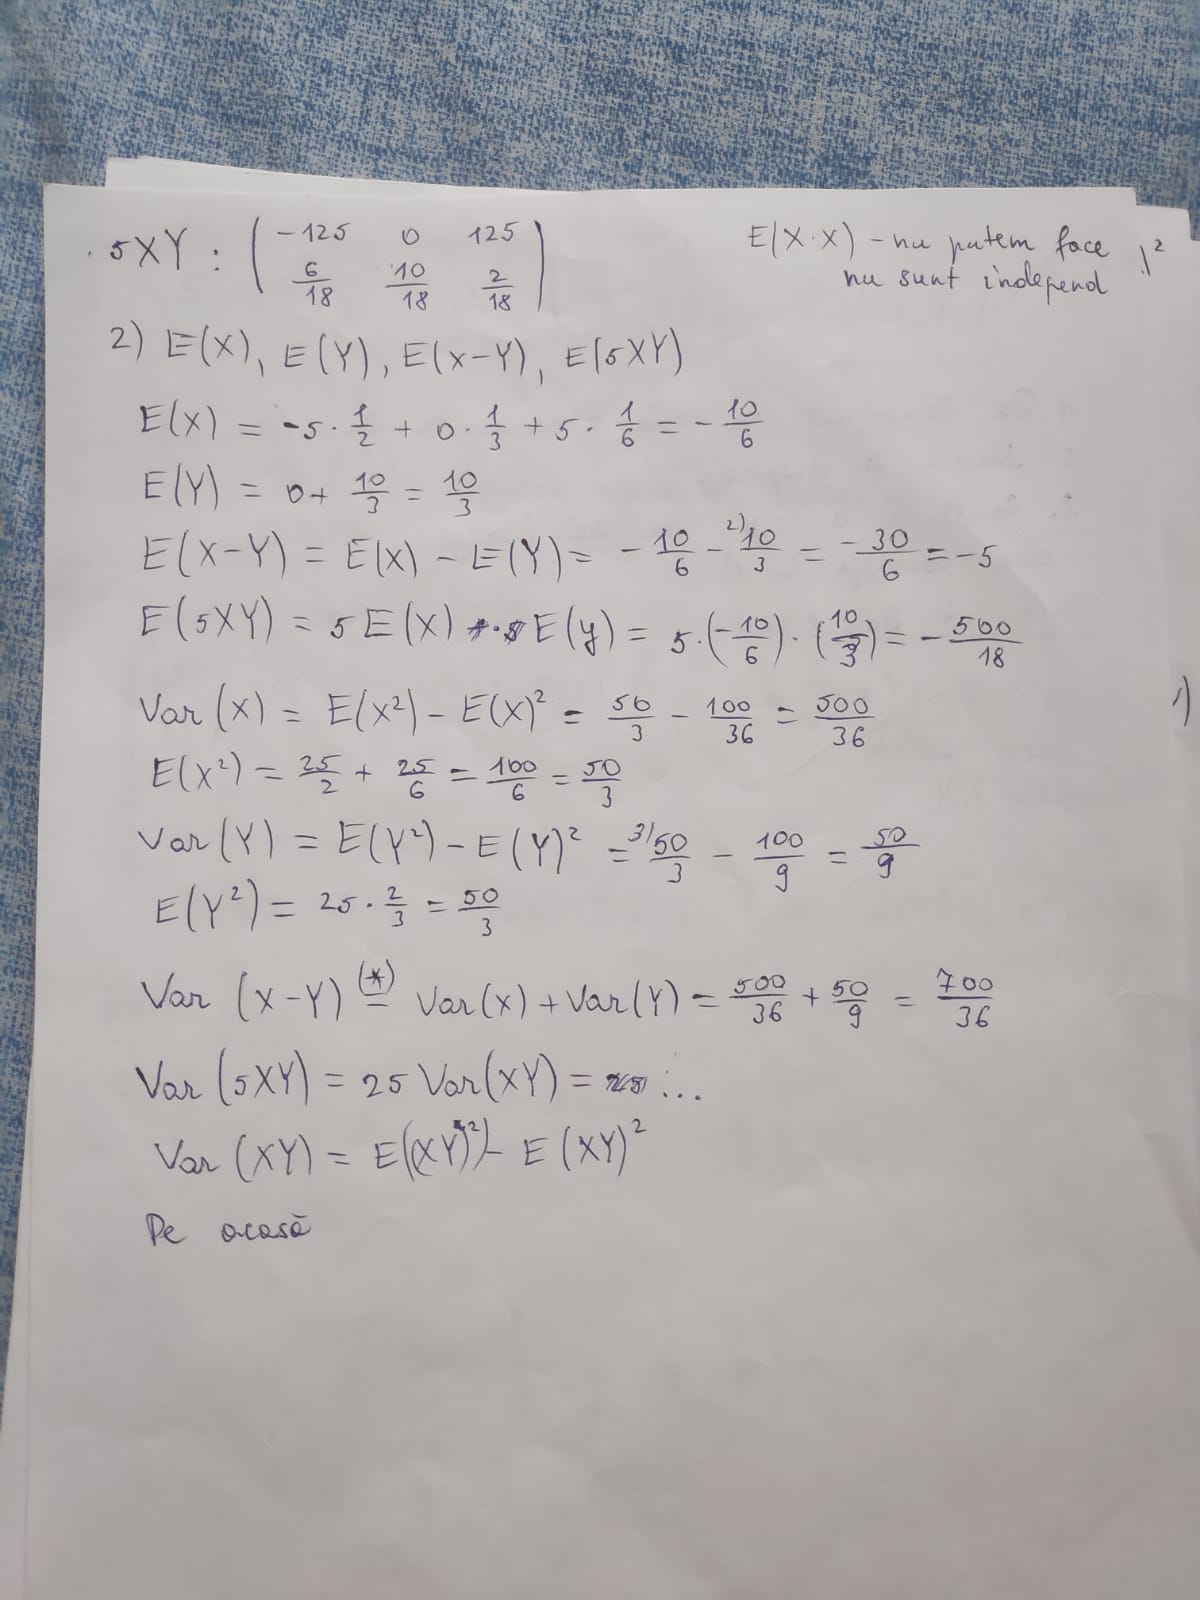 . 5XY : ( -125 0 125 )
( 6/18 10/18 2/18 )
E(X·X) - nu putem face
nu sunt independ
2) E(X), E(Y), E(X-Y), E(5XY)
E(X) = -5 · 1/2 + 0 · 1/3 + 5 · 1/6 = - 10/6
E(Y) = 0+ 10/3 = 10/3
E(X-Y) = E(X) - E(Y) = - 10/6 - 2) 10/3 = - 30/6 = -5
E(5XY) = 5 E(X) · E(y) = 5·(- 10/6) · (10/3) = - 500/18
Var (X) = E(X²) - E(X)² = 50/3 - 100/36 = 500/36
E(X²) = 25/2 + 25/6 = 100/6 = 50/3
Var (Y) = E(Y²) - E(Y)² = 3) 50/3 - 100/9 = 50/9
E(Y²) = 25 · 2/3 = 50/3
Var (X-Y) (*)= Var(X) + Var(Y) = 500/36 + 50/9 = 700/36
Var (5XY) = 25 Var(XY) = ...
Var (XY) = E((XY)²) - E (XY)²
Pe acasă